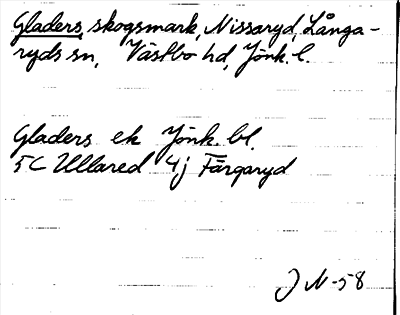 Gladers, skogsmark, Nissaryd, Långa-
ryds sn, Västbo hd, Jönk. l.
Gladers ek Jönk. bl.
5C Ullared 4j Färgaryd
J N -58